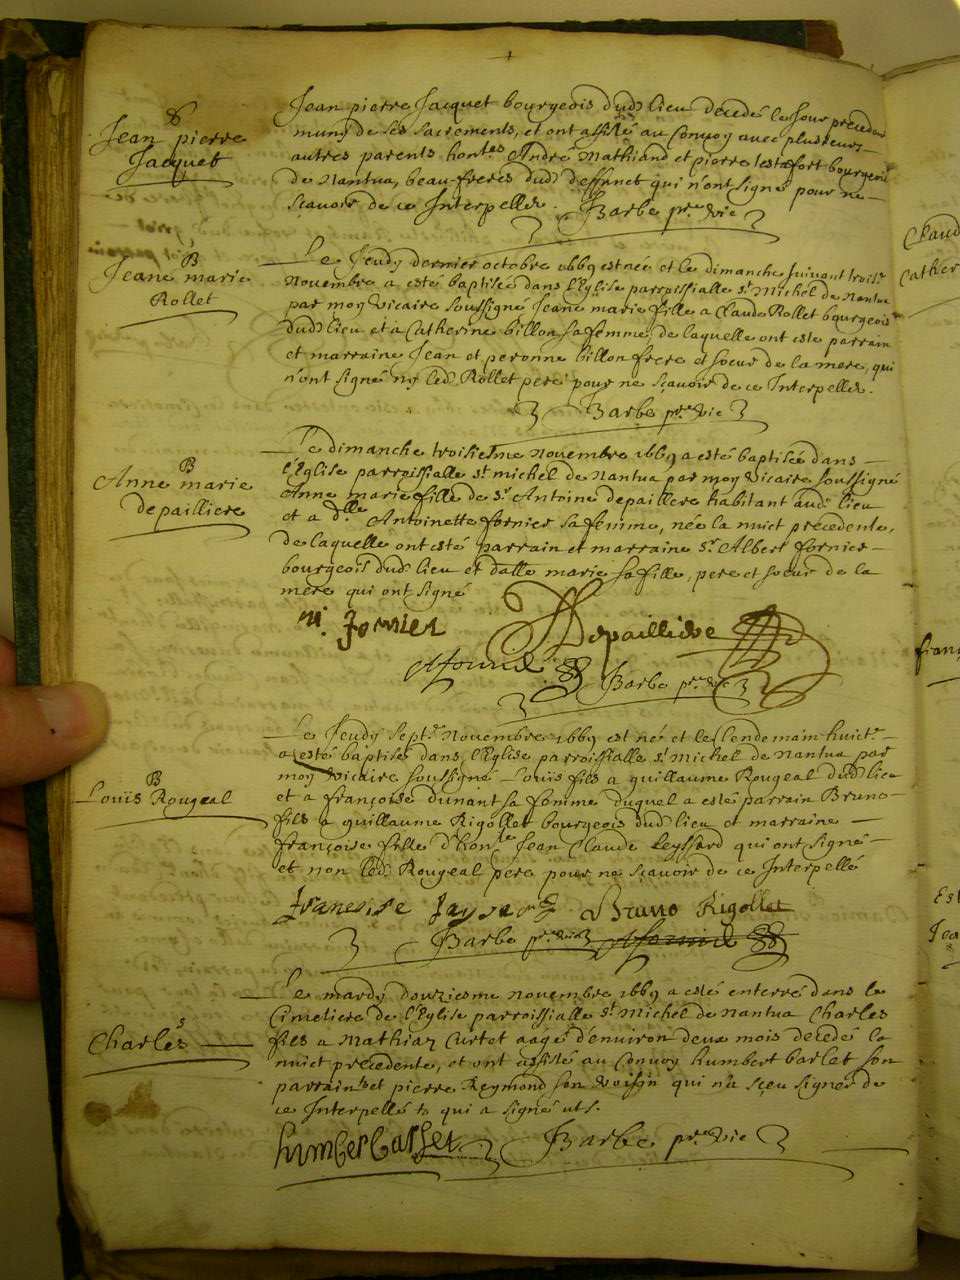 S
Jean pierre
Jacquet
Jean pierre Jacquet bourgeois dud lieu decedé le Jour precedent
muny de ses sacrements, et ont assisté au Convoy avec plusieurs
autres parents hontes André Mathiand et pierre bourgeois
de Nantua, beau-freres dud deffunct qui n'ont signé pour ne
sçavoir de ce Interpellés. Barbe pre vic
B
Jeane marie
Rollet
Le Jeudy dernier octobre 1669 est née et le dimanche suivant troise
Novembre a esté baptisée dans l'Eglise parroissialle st Michel de Nantua
par moy vicaire soussigné Jeane marie fille a Claude Rollet bourgeois
dud lieu et a Catherine billon sa femme, de laquelle ont esté parrain
et marraine Jean et peronne billon frere et soeur de la mere, qui
n'ont signé ny led Rollet pere pour ne sçavoir de ce Interpellés.
Barbe pre vic
B
Anne marie
Depailliere
Le dimanche troisiesme Novembre 1669 a esté baptisée dans
l'Eglise parroissialle st michel de Nantua par moy vicaire soussigné
Anne marie fille de sr Antoine depailliere habitant aud lieu
et a dlle Antoinette fornier sa femme, née la nuict precedente,
de laquelle ont esté parrain et marraine sr Albert fornier
bourgeois dud lieu et dalle marie sa fille, pere et soeur de la
mere qui ont signé
m. fornier Depailliere
Afornier Barbe pre vic
B
Louïs Rougeal
Le Jeudy septe Novembre 1669 est né et le lendemain huicte
a esté baptisé dans l'Eglise parroissialle st michel de Nantua par
moy vicaire soussigné Louïs fils a guillaume Rougeal dud lieu
et a françoise dunant sa femme duquel a esté parrain Bruno
fils a guillaume Rigollet bourgeois dud lieu et marraine
françoise fille d'honle Jean Claude Leyssard qui ont signé
et non led Rougeal pere pour ne sçavoir de ce Interpellé
Bruno Rigollet
Barbe pre vic Afornier
S
Charles
Le mardy douziesme novembre 1669 a esté enterré dans le
Cimetiere de l'Eglise parroissialle st Michel de Nantua Charles
fils a Mathiaz Curtet aagé d'environ deux mois decedé la
nuict precedente, et ont assisté au Convoy humbert barlet son
parrain et pierre Reymond son voisin qui n'a sçeu signer de
ce Interpellé qui a signé uts.
humber barlet Barbe pre vic
Claud
Cather
franç
Est
Jea